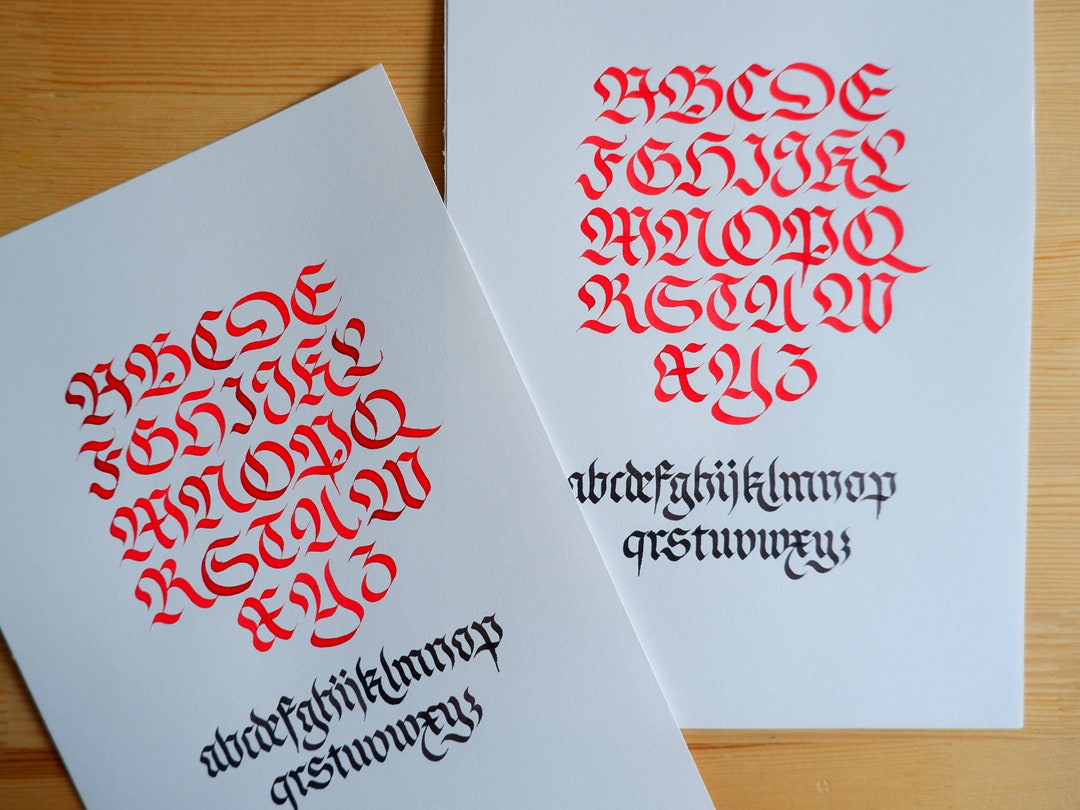 ABCDE
FGHIJKL
MNOPQ
RSTUW
XYZ
abcdefghijklmnop
qrstuvwxyz
ABCDE
FGHIJKL
MNOPQ
RSTUW
XYZ
abcdefghijklmnop
qrstuvwxyz